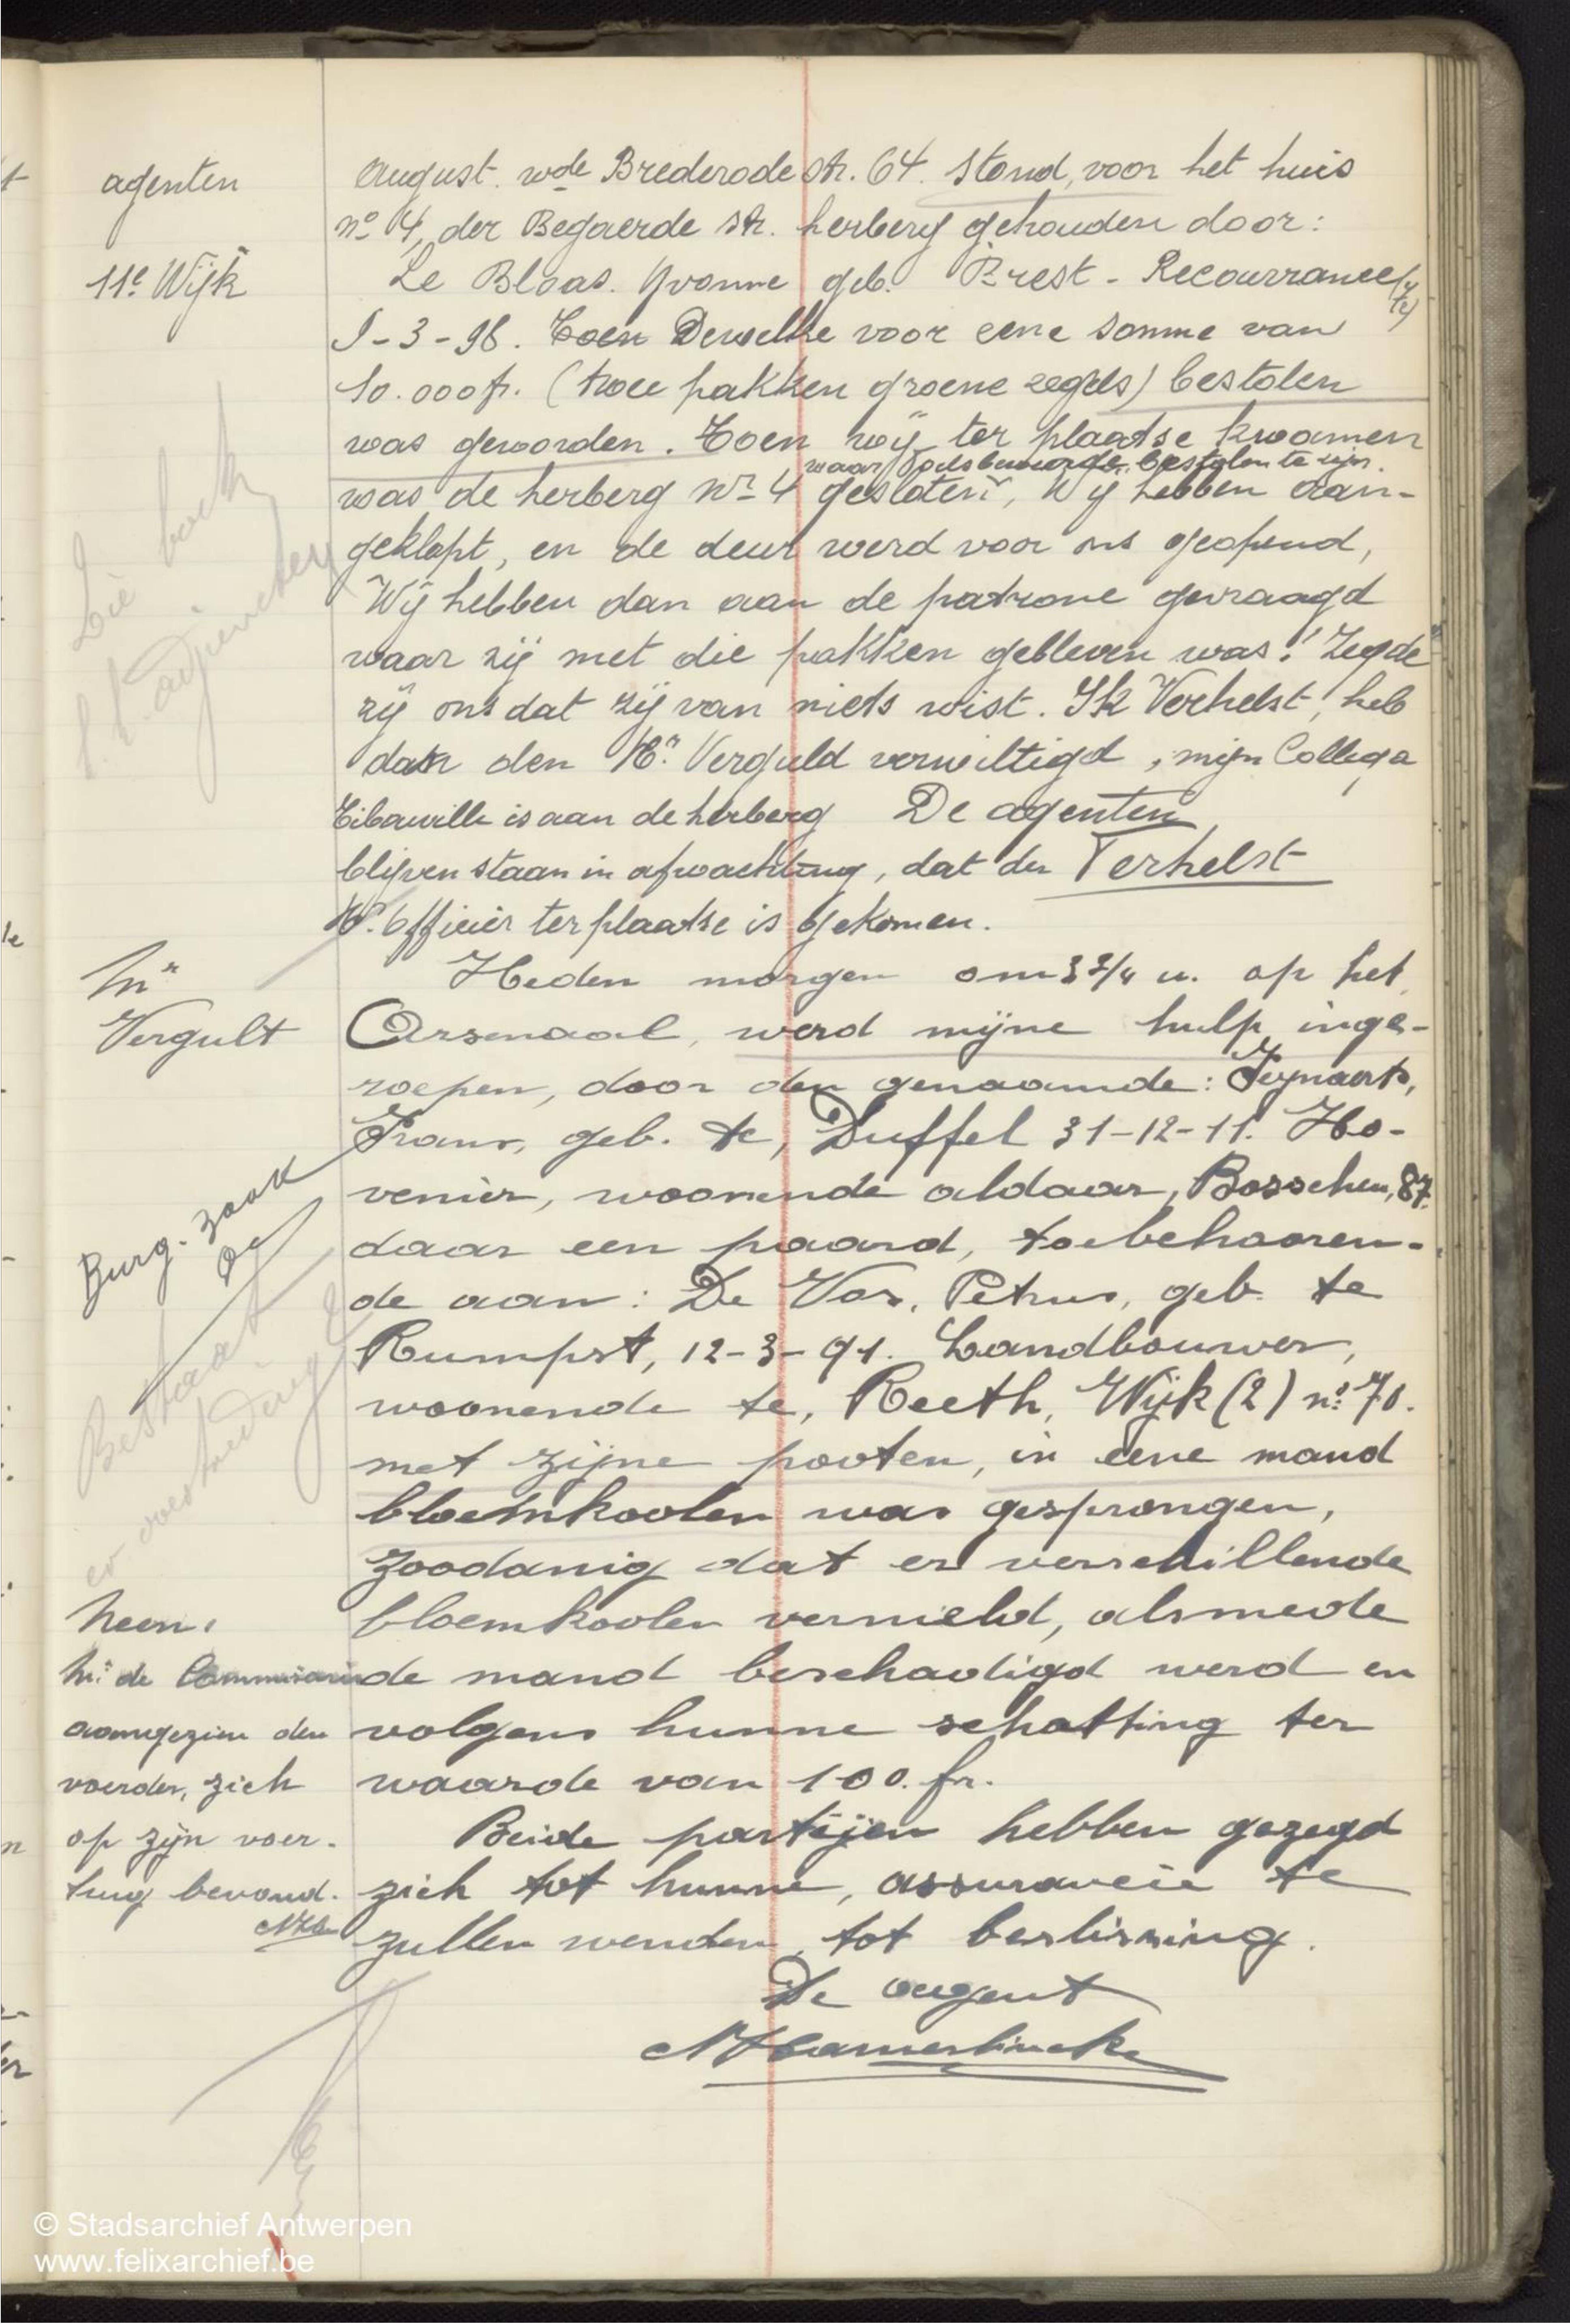 agenten
11e Wijk
August. wde Brederode str. 64. stond, voor het huis
no 4, der Begaerde str. herberg gehouden door:
Le Bloas. Yvonne geb. Brest - Recourrance
9-3-98. Toen Dewelke voor eene somme van
10.000 fr. (twee pakken groene zegels) bestolen
was geworden. Toen wij ter plaatse kwamen
waar bestolen te zijn.
was de herberg nr 4 gesloten, Wij hebben aan-
geklopt, en de deur werd voor ons geopend,
Wij hebben dan aan de patrone gevraagd
waar zij met die pakken gebleven was! Zegde
zij ons dat zij van niets wist. Ik Verhelst, heb
dan den Hr. Verguld verwittigd, mijn Collega
Tibauville is aan de herberg De agenten
blijven staan in afwachting, dat den Verhelst
Hr. Officier ter plaatse is gekomen.
Zie boek
Mr
Vergult
Heden morgen om 3 3/4 u. op het
Arsenaal, werd mijne hulp inge-
roepen, door den genaamde: Seynaerts,
Frans, geb. te, Duffel 31-12-11. Ho-
venier, woonende aldaar, Bosschen, 87.
daar een paard, toebehooren-
de aan: De Vos, Petrus, geb. te
Rumpst, 12-3-91. Landbouwer,
woonende te, Reeth, Wijk (2) no 70.
met zijne pooten, in eene mand
bloemkoolen was gesprongen,
zoodanig dat er verschillende
bloemkoolen vernield, alsmede
de mand beschadigd werd en
volgens hunne schatting ter
waarde van 100. fr.
Beide partijen hebben gezegd
zich tot hunne, assurancie te
zullen wenden, tot beslissing.
De agent
Burg. zaak
Bestaat
er overtreding
Neen,
Mr de Commissaris
aangezien den
voerder, zich
op zijn voer-
tuig bevond.
© Stadsarchief Antwerpen
www.felixarchief.be